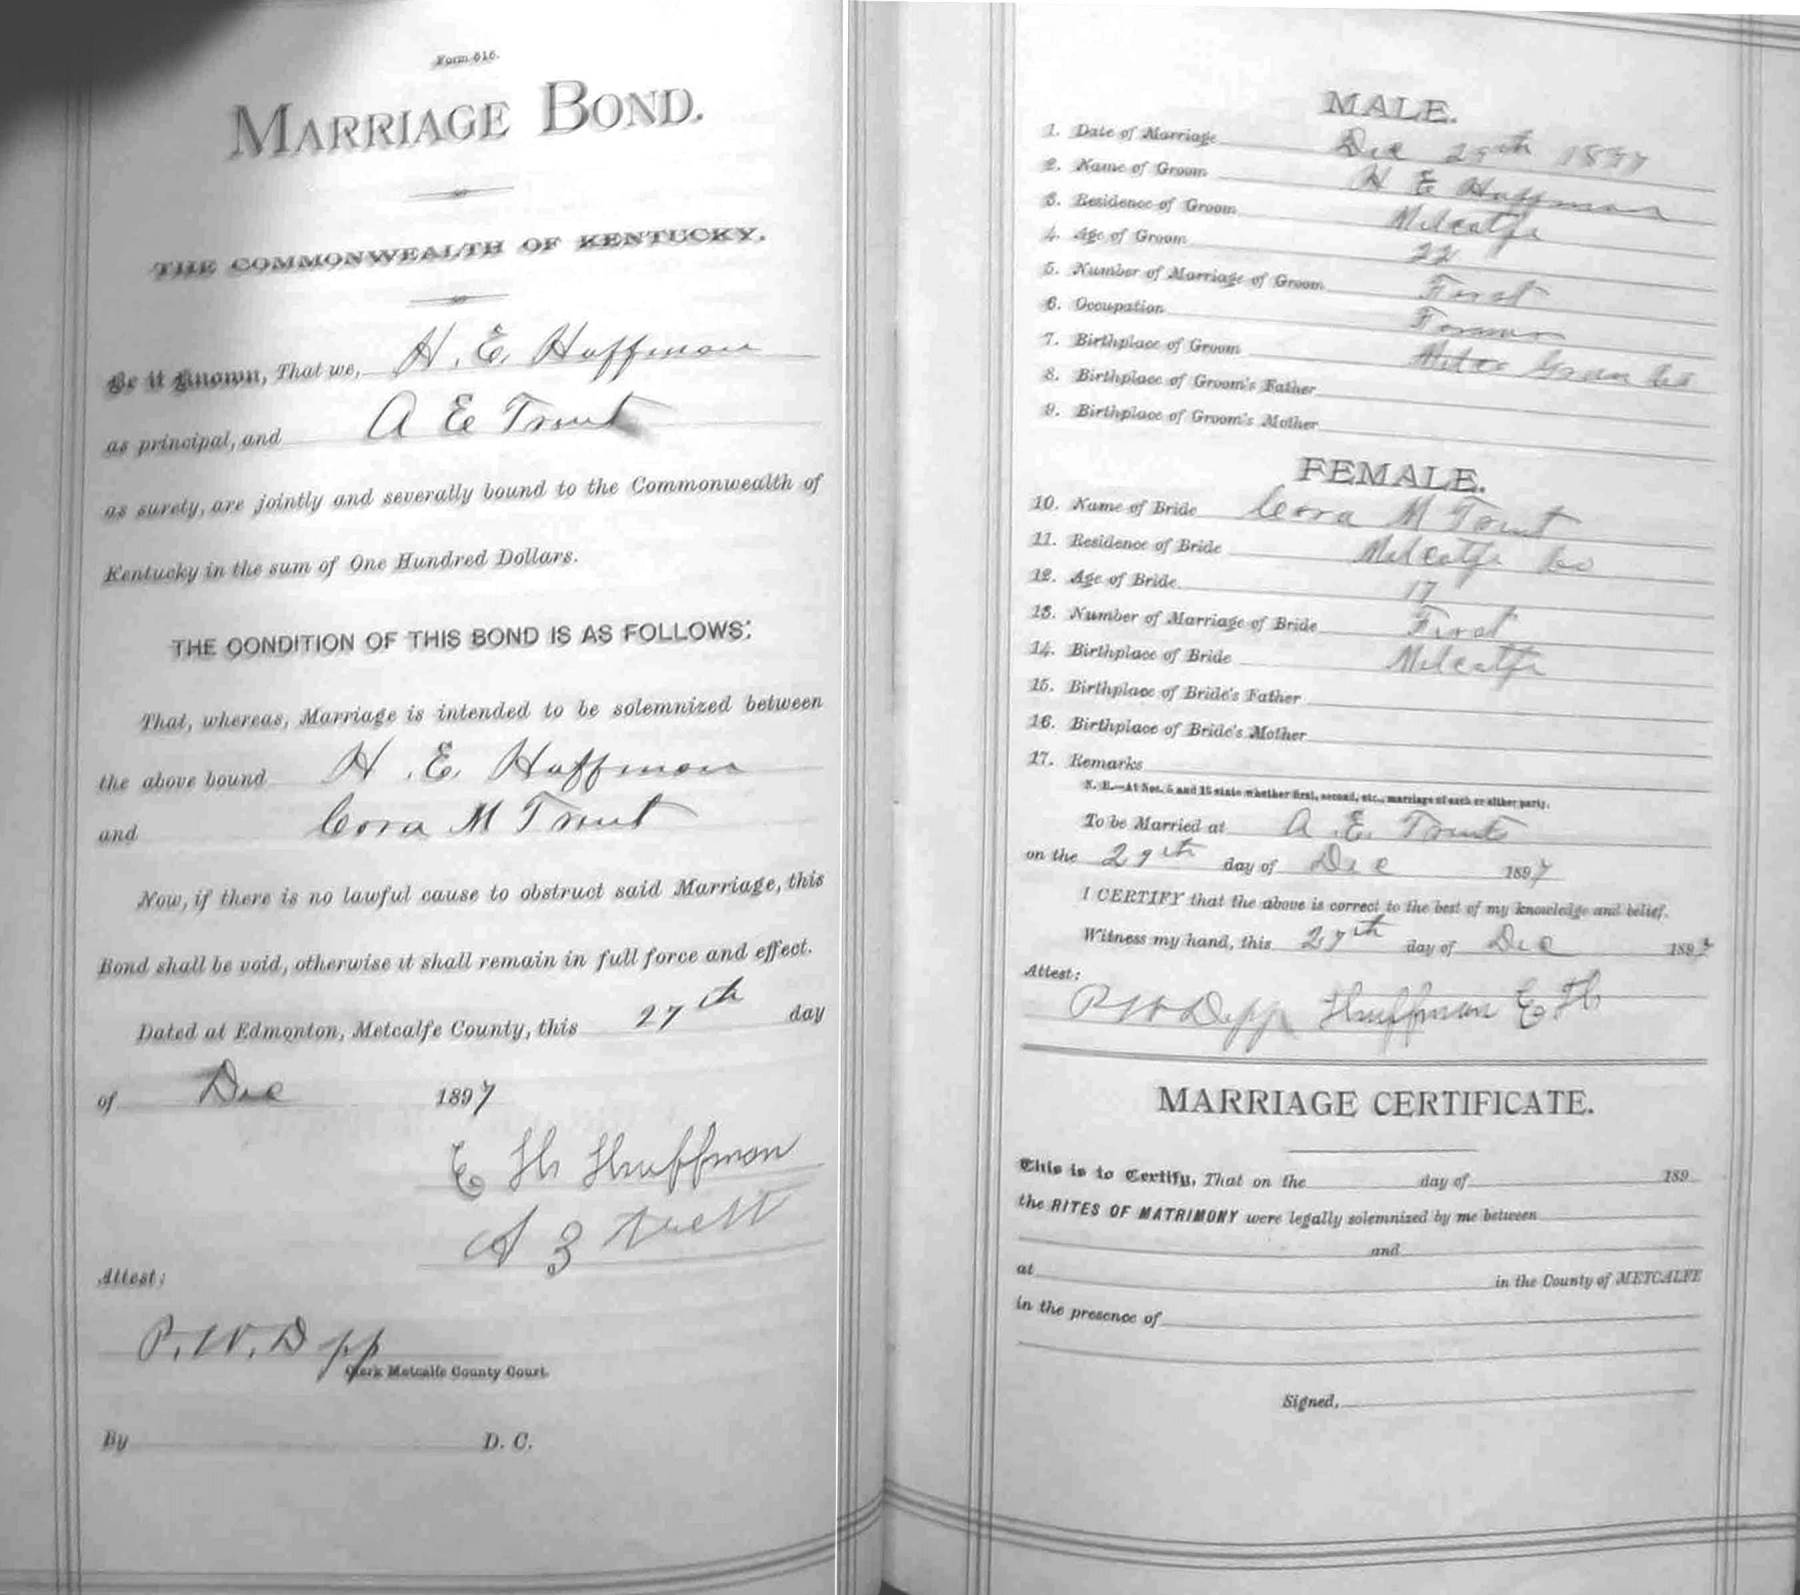 Form 515.
MARRIAGE BOND.
THE COMMONWEALTH OF KENTUCKY.
Be it Known, That we, H. E. Huffman
as principal, and A E Trout
as surety, are jointly and severally bound to the Commonwealth of
Kentucky in the sum of One Hundred Dollars.
THE CONDITION OF THIS BOND IS AS FOLLOWS:
That, whereas, Marriage is intended to be solemnized between
the above bound H. E. Huffman
and Cora M Trout
Now, if there is no lawful cause to obstruct said Marriage, this
Bond shall be void, otherwise it shall remain in full force and effect.
Dated at Edmonton, Metcalfe County, this 27th day
of Dec 1897
E H Huffman
A
Attest:
P. W. Depp
Clerk Metcalfe County Court.
By D. C.
MALE.
1. Date of Marriage Dec 29th 1897
2. Name of Groom H E Huffman
3. Residence of Groom Metcalfe
4. Age of Groom 22
5. Number of Marriage of Groom First
6. Occupation Farmer
7. Birthplace of Groom Green Co
8. Birthplace of Groom's Father
9. Birthplace of Groom's Mother
FEMALE.
10. Name of Bride Cora M Trout
11. Residence of Bride Metcalfe Co
12. Age of Bride 17
13. Number of Marriage of Bride First
14. Birthplace of Bride Metcalfe
15. Birthplace of Bride's Father
16. Birthplace of Bride's Mother
17. Remarks
N. B.—At Nos. 5 and 13 state whether first, second, etc., marriage of each or either party.
To be Married at A. E. Trouts
on the 29th day of Dec 1897
I CERTIFY that the above is correct to the best of my knowledge and belief.
Witness my hand, this 27th day of Dec 1897
Attest:
P W Depp Huffman E H
MARRIAGE CERTIFICATE.
This is to Certify, That on the day of 189
the RITES OF MATRIMONY were legally solemnized by me between
and
at in the County of METCALFE
in the presence of
Signed,